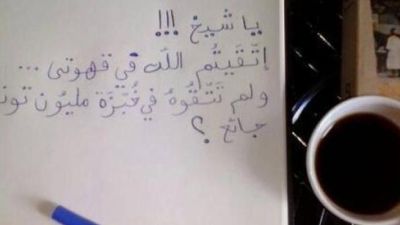 يا شيخ !!!
إتّقَيتُم اللّه في قهوتي ...
ولم تَتّقُوهُ في خُبزَة مليُون تون
جائع ؟